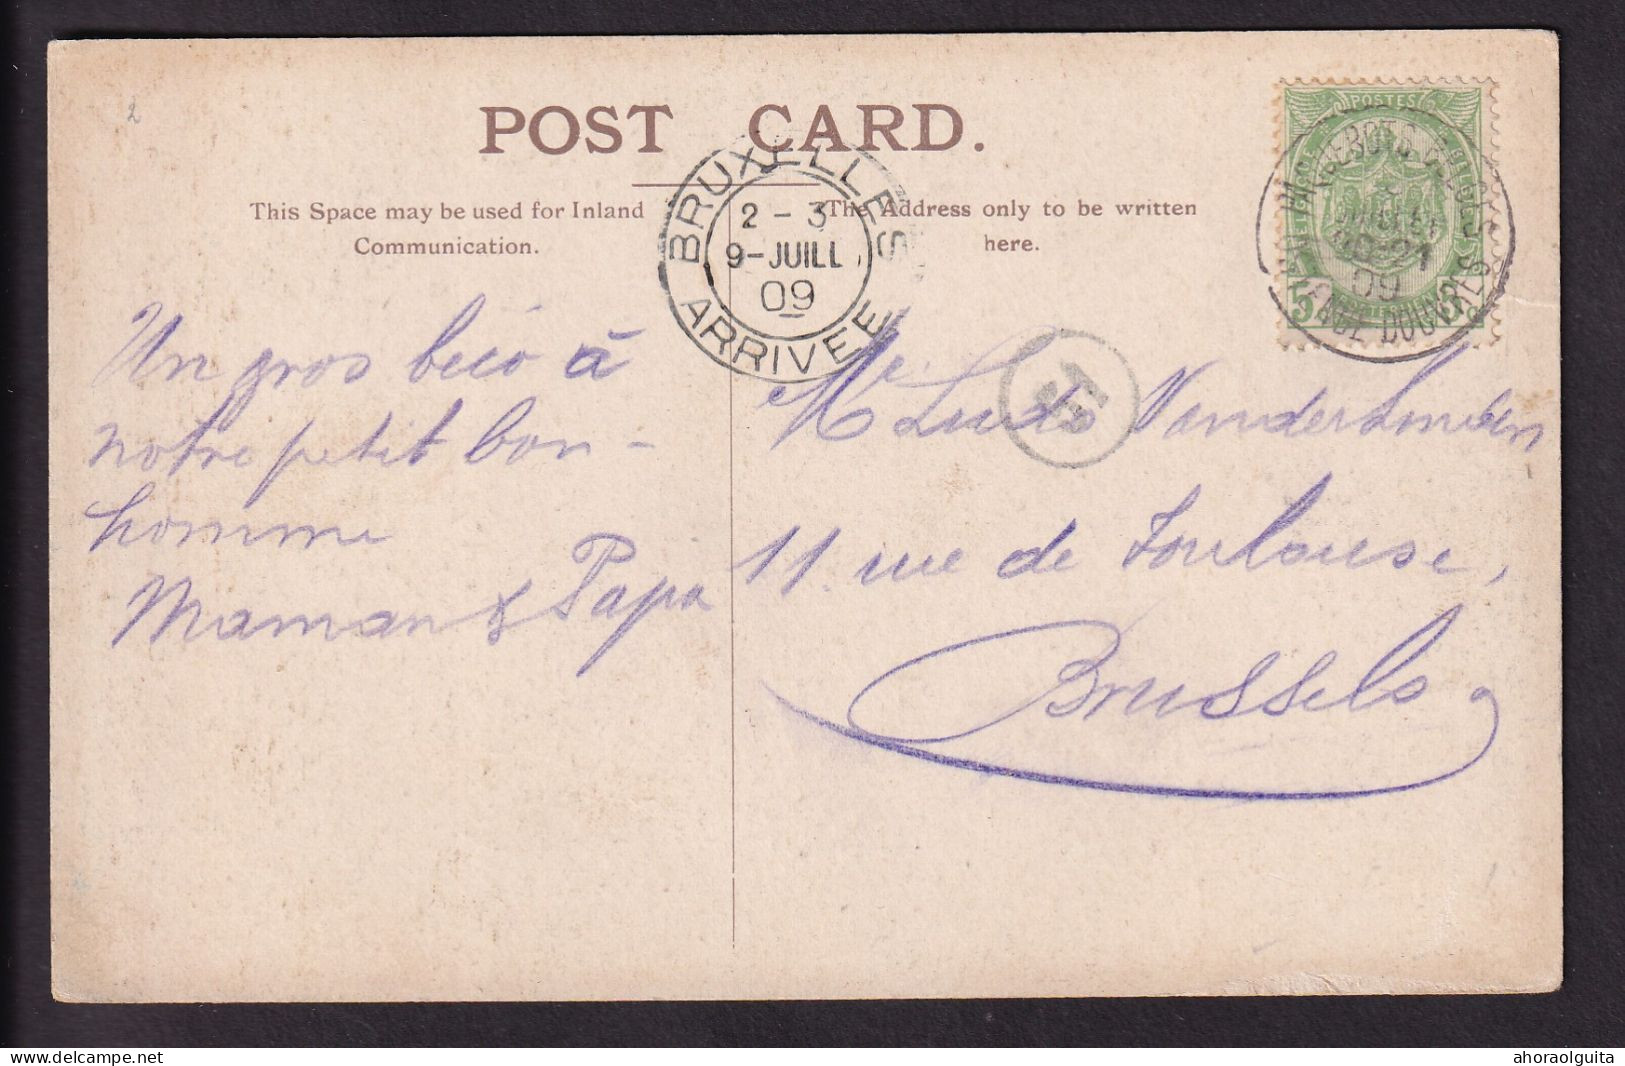 2
POST CARD.
This Space may be used for Inland
Communication.
The Address only to be written
here.
BRUXELLES
2 - 3
9-JUILL
09
ARRIVEE
POSTES
5
09
Un gros béco à
notre petit bon-
homme
Maman & Papa
Mr. Ludo
11. rue de Toulouse,
Brussels
delcampe.net
ahoraolguita